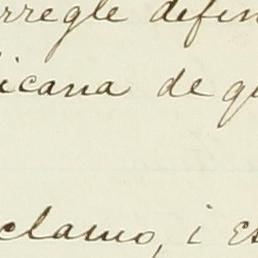 rregle defin
icana de qu
clamo, i es